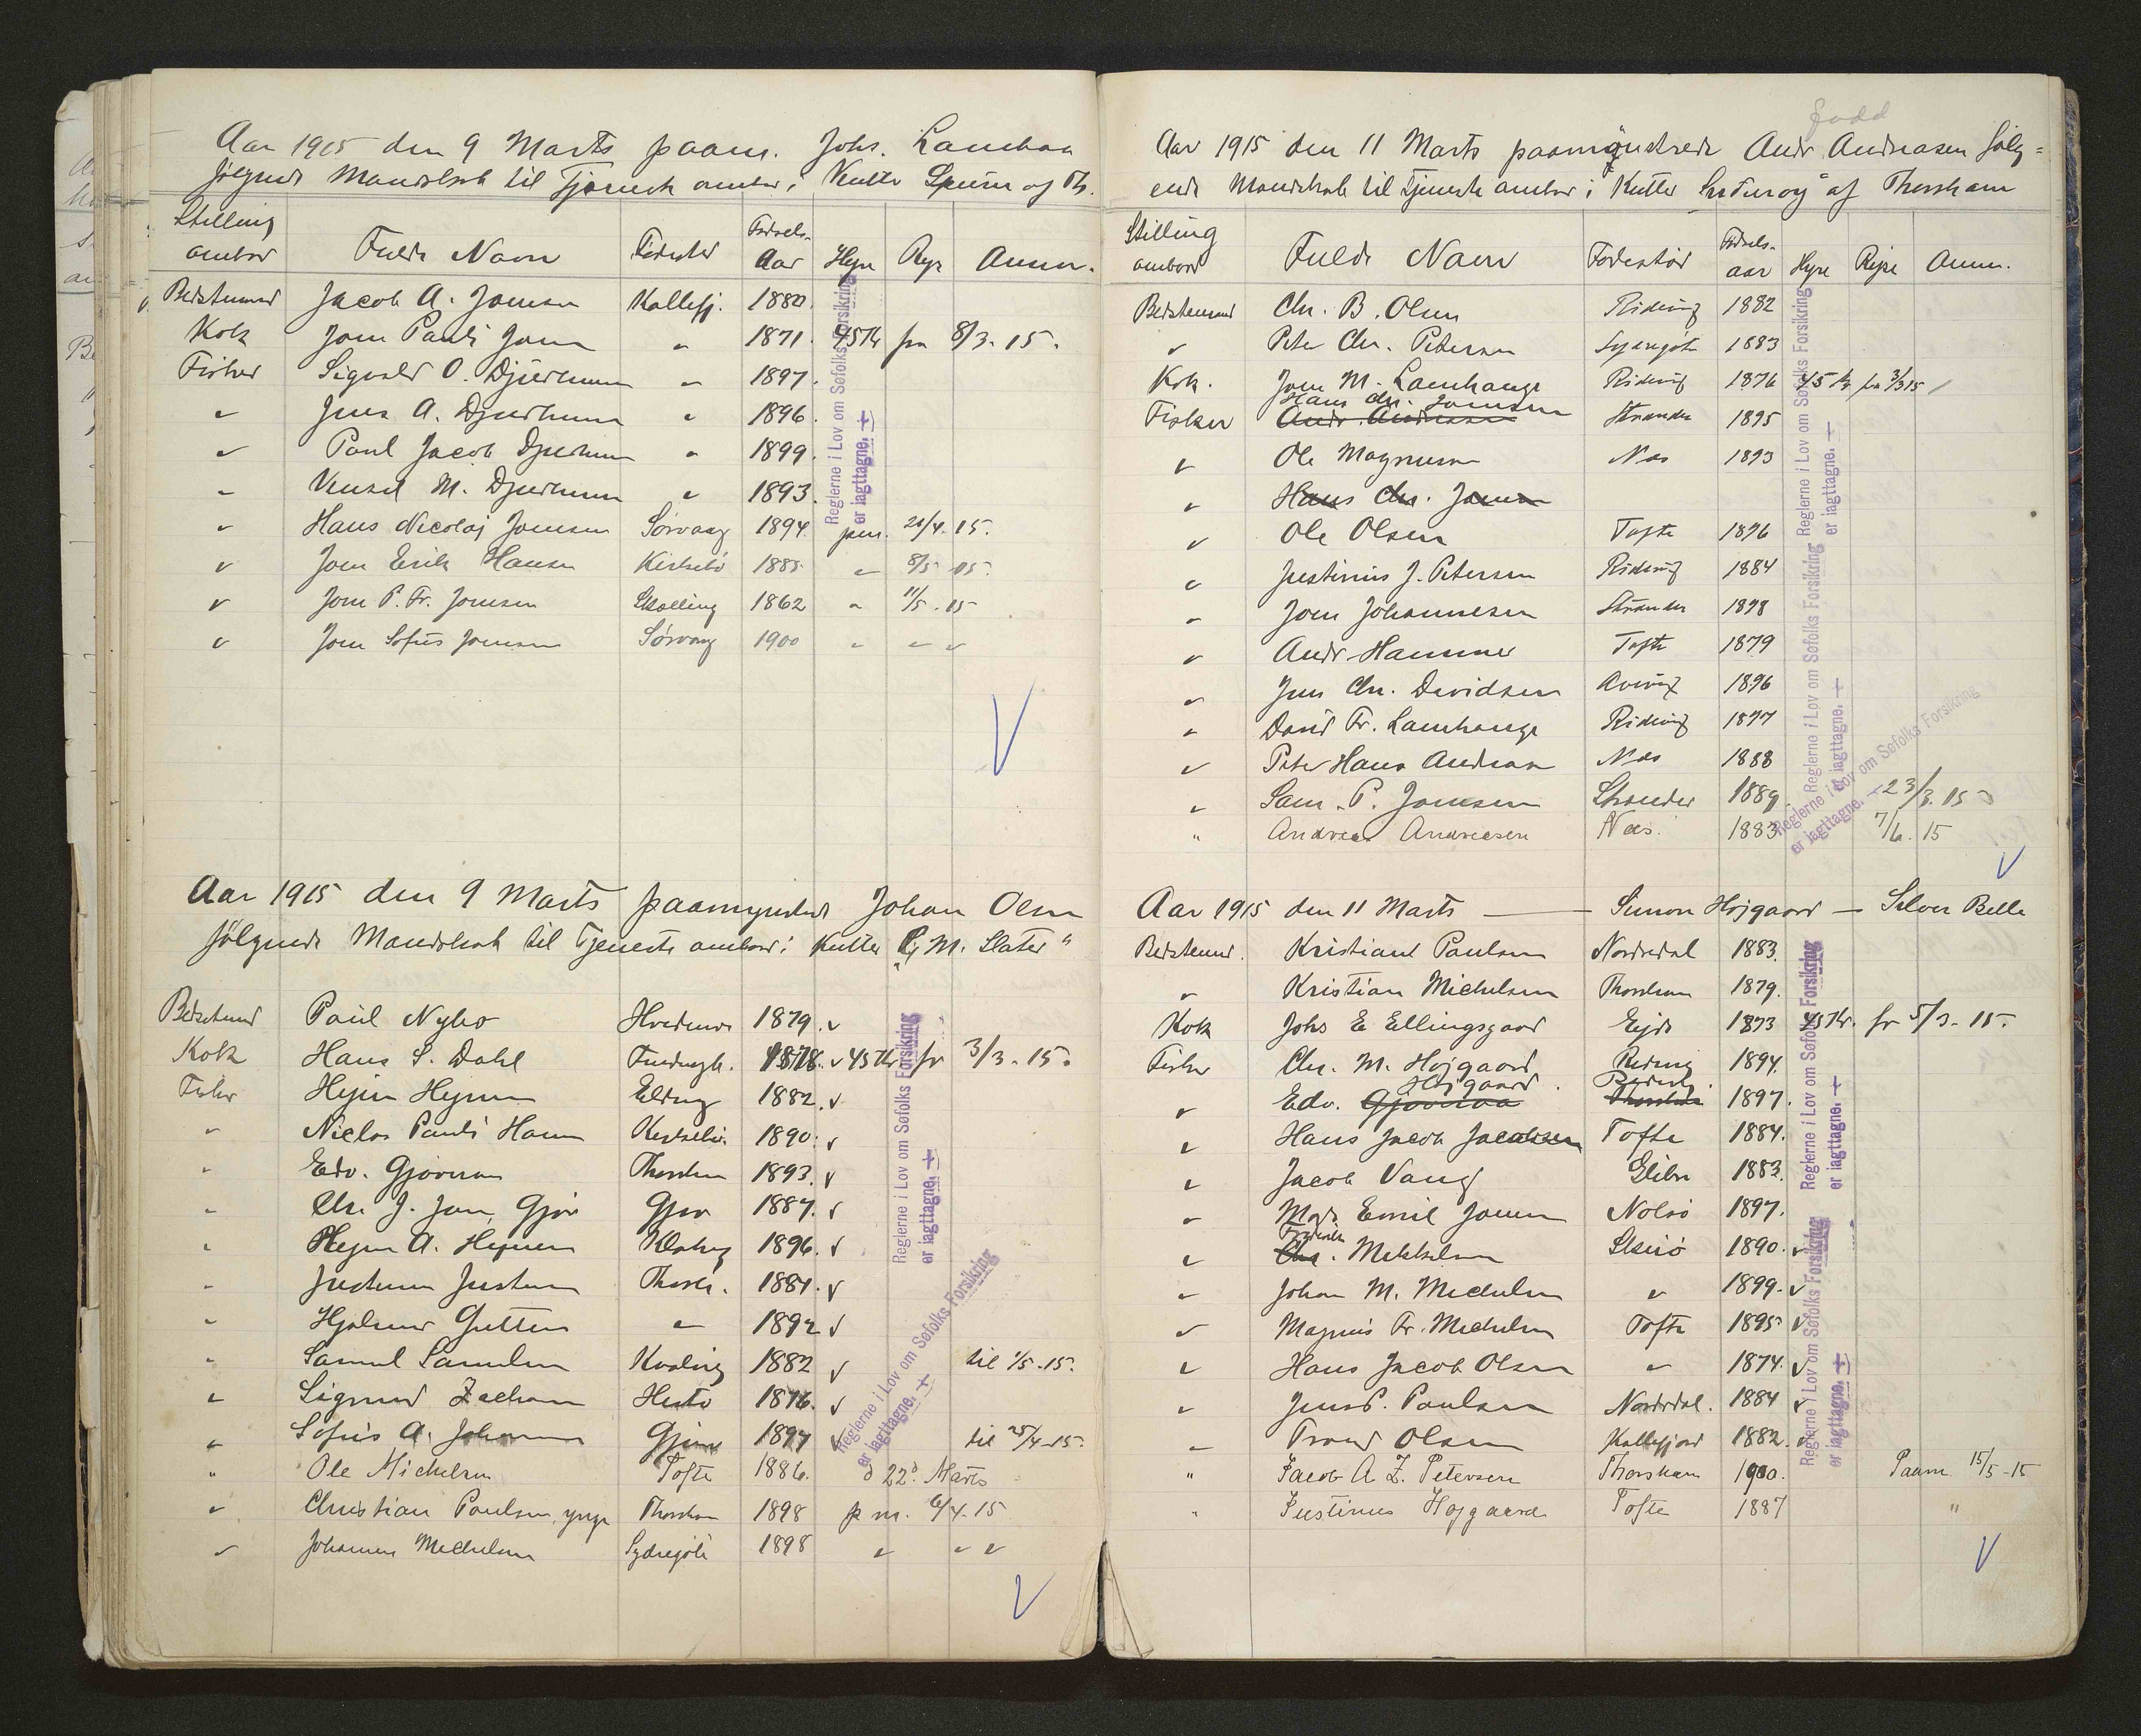 Aar 1915 den 9 Marts paam. Johs.
følgende Mandskab til Tjeneste ombor i Kutter Spurn af Th.
Stilling ombor Fulde Navn Fødested Fødsels-Aar Hyre Rejse Anm.
Bedstemand Jacob A. Joensen Kollefj. 1880.
Kok Joen Pauli Joen " 1871. 45 Kr fra 8/3-15.
Fisker Sigvald O. Djurhuus " 1897.
" Jens A. Djurhuus " 1896.
" Poul Jacob Djurhuus " 1899.
" M. Djurhuus " 1893.
" Hans Nicolaj Joensen Sørvaag 1894 paam. 20/4-15.
" Joen Erik Hansen Kirkebø 1885 " 8/5-15.
" Joen P. Fr. Joensen Skælling 1862 " 11/5-15
" Joen Sofus Joensen Sørvaag 1900 " " "
Reglerne i Lov om Søfolks Forsikring
er iagttagne. +
Aar 1915 den 9 Marts paamynstrede Johan Olsen
følgende Mandskab til Tjeneste ombor i Kutter M. Slater"
Bedstemand Paul Nybo 1879.
Kok Hans S. Dahl 1878. 45 Kr fr 3/3-15.
Fisker Hejne Hejnesen 1882.
" Niclas Pauli Hansen Kirkebø 1890.
" Edv. Thorshavn 1893.
" Chr. J. Joen. Gjov Gjov 1887.
" Hejne A. Hejnesen 1896.
" Justinus Justinussen Thorsh. 1881.
" Hjalmar Guttesen " 1892
" Samuel Samuelsen Kvalvig 1882 til 1/5-15.
" Sigmund Zachariasen Hestø 1876.
" Sofus A. 1897 til 25/4-15.
" Ole Michelsen Tofte 1886. d 22d. Marts
" Christian Poulsen, ynge Thorshavn 1898 p m. 6/4-15
" Johannes Michelsen Sydregøte 1898 " " "
Reglerne i Lov om Søfolks Forsikring
er iagttagne. +
Reglerne i Lov om Søfolks Forsikring
er iagttagne. +
Aar 1915 den 11 Marts paamynstrede Andr. Andreasen følg=
ende Mandskab til Tjeneste ombor i Kutter "Suduroy" af Thorshavn
Stilling ombord Fulde Navn Fødested Fødsels-aar Hyre Rejse Anm.
Bedstemand Chr. B. Olsen Ridevig 1882
" Peter Chr. Petersen 1883
Kok. Joen M. Lamhauge Ridevig 1876 45 Kr fra 3/3 15
Hans Chr. Joensen
Fisker Andr. Andreasen Strænder 1895
" Ole Magnussen Næs 1893
" Hans Chr. Joensen
" Ole Olsen Tofte 1896
" Justinus J. Petersen Ridevig 1884
" Joen Johannesen Strænder 1898
" Andr. Hammer Tofte 1879
" Jens Chr. Davidsen 1896
" David Fr. Lamhauge Ridevig 1897
" Peter Hans Andreasen Næs 1888
" Sam. P. Joensen Strænder 1889 23/3. 15
" Andreas Andreasen Næs. 1883 7/6. 15
Reglerne i Lov om Søfolks Forsikring
er iagttagne. +
Reglerne i Lov om Søfolks Forsikring
er iagttagne. +
Reglerne i Lov om Søfolks Forsikring
er iagttagne. +
Aar 1915 den 11 Marts — Simon Højgaard — Silver Belle
Bedstemand. Kristiant Paulsen Nordredal 1883.
" Kristian Michelsen Thorshavn 1879.
Kok Johs E Ellingsgaard Ejde 1873 45 Kr. fr 5/3-15.
Fisker Chr. M. Højgaard Redevig 1894.
Højgaard. Redevig.
" Edv. 1897.
" Hans Jacob Jacobsen Tofte 1884.
" Jacob Vang Glibre 1883.
" Mads Emil Joensen Nolsø 1897.
Frederik
" Chr. Mikkelsen Skuø 1890.
" Johan M. Michelsen " 1899.
" Magnus Fr. Michelsen Tofte 1895
" Hans Jacob Olsen " 1874.
" Jens P. Poulsen Nordredal. 1884
" Trond Olsen Kollefjord 1882.
" Jacob A Z. Petersen Thorshavn 1900. Paam 15/5-15
" Justinus Højgaard Tofte 1887 "
Reglerne i Lov om Søfolks Forsikring
er iagttagne. +
Reglerne i Lov om Søfolks Forsikring
er iagttagne. +